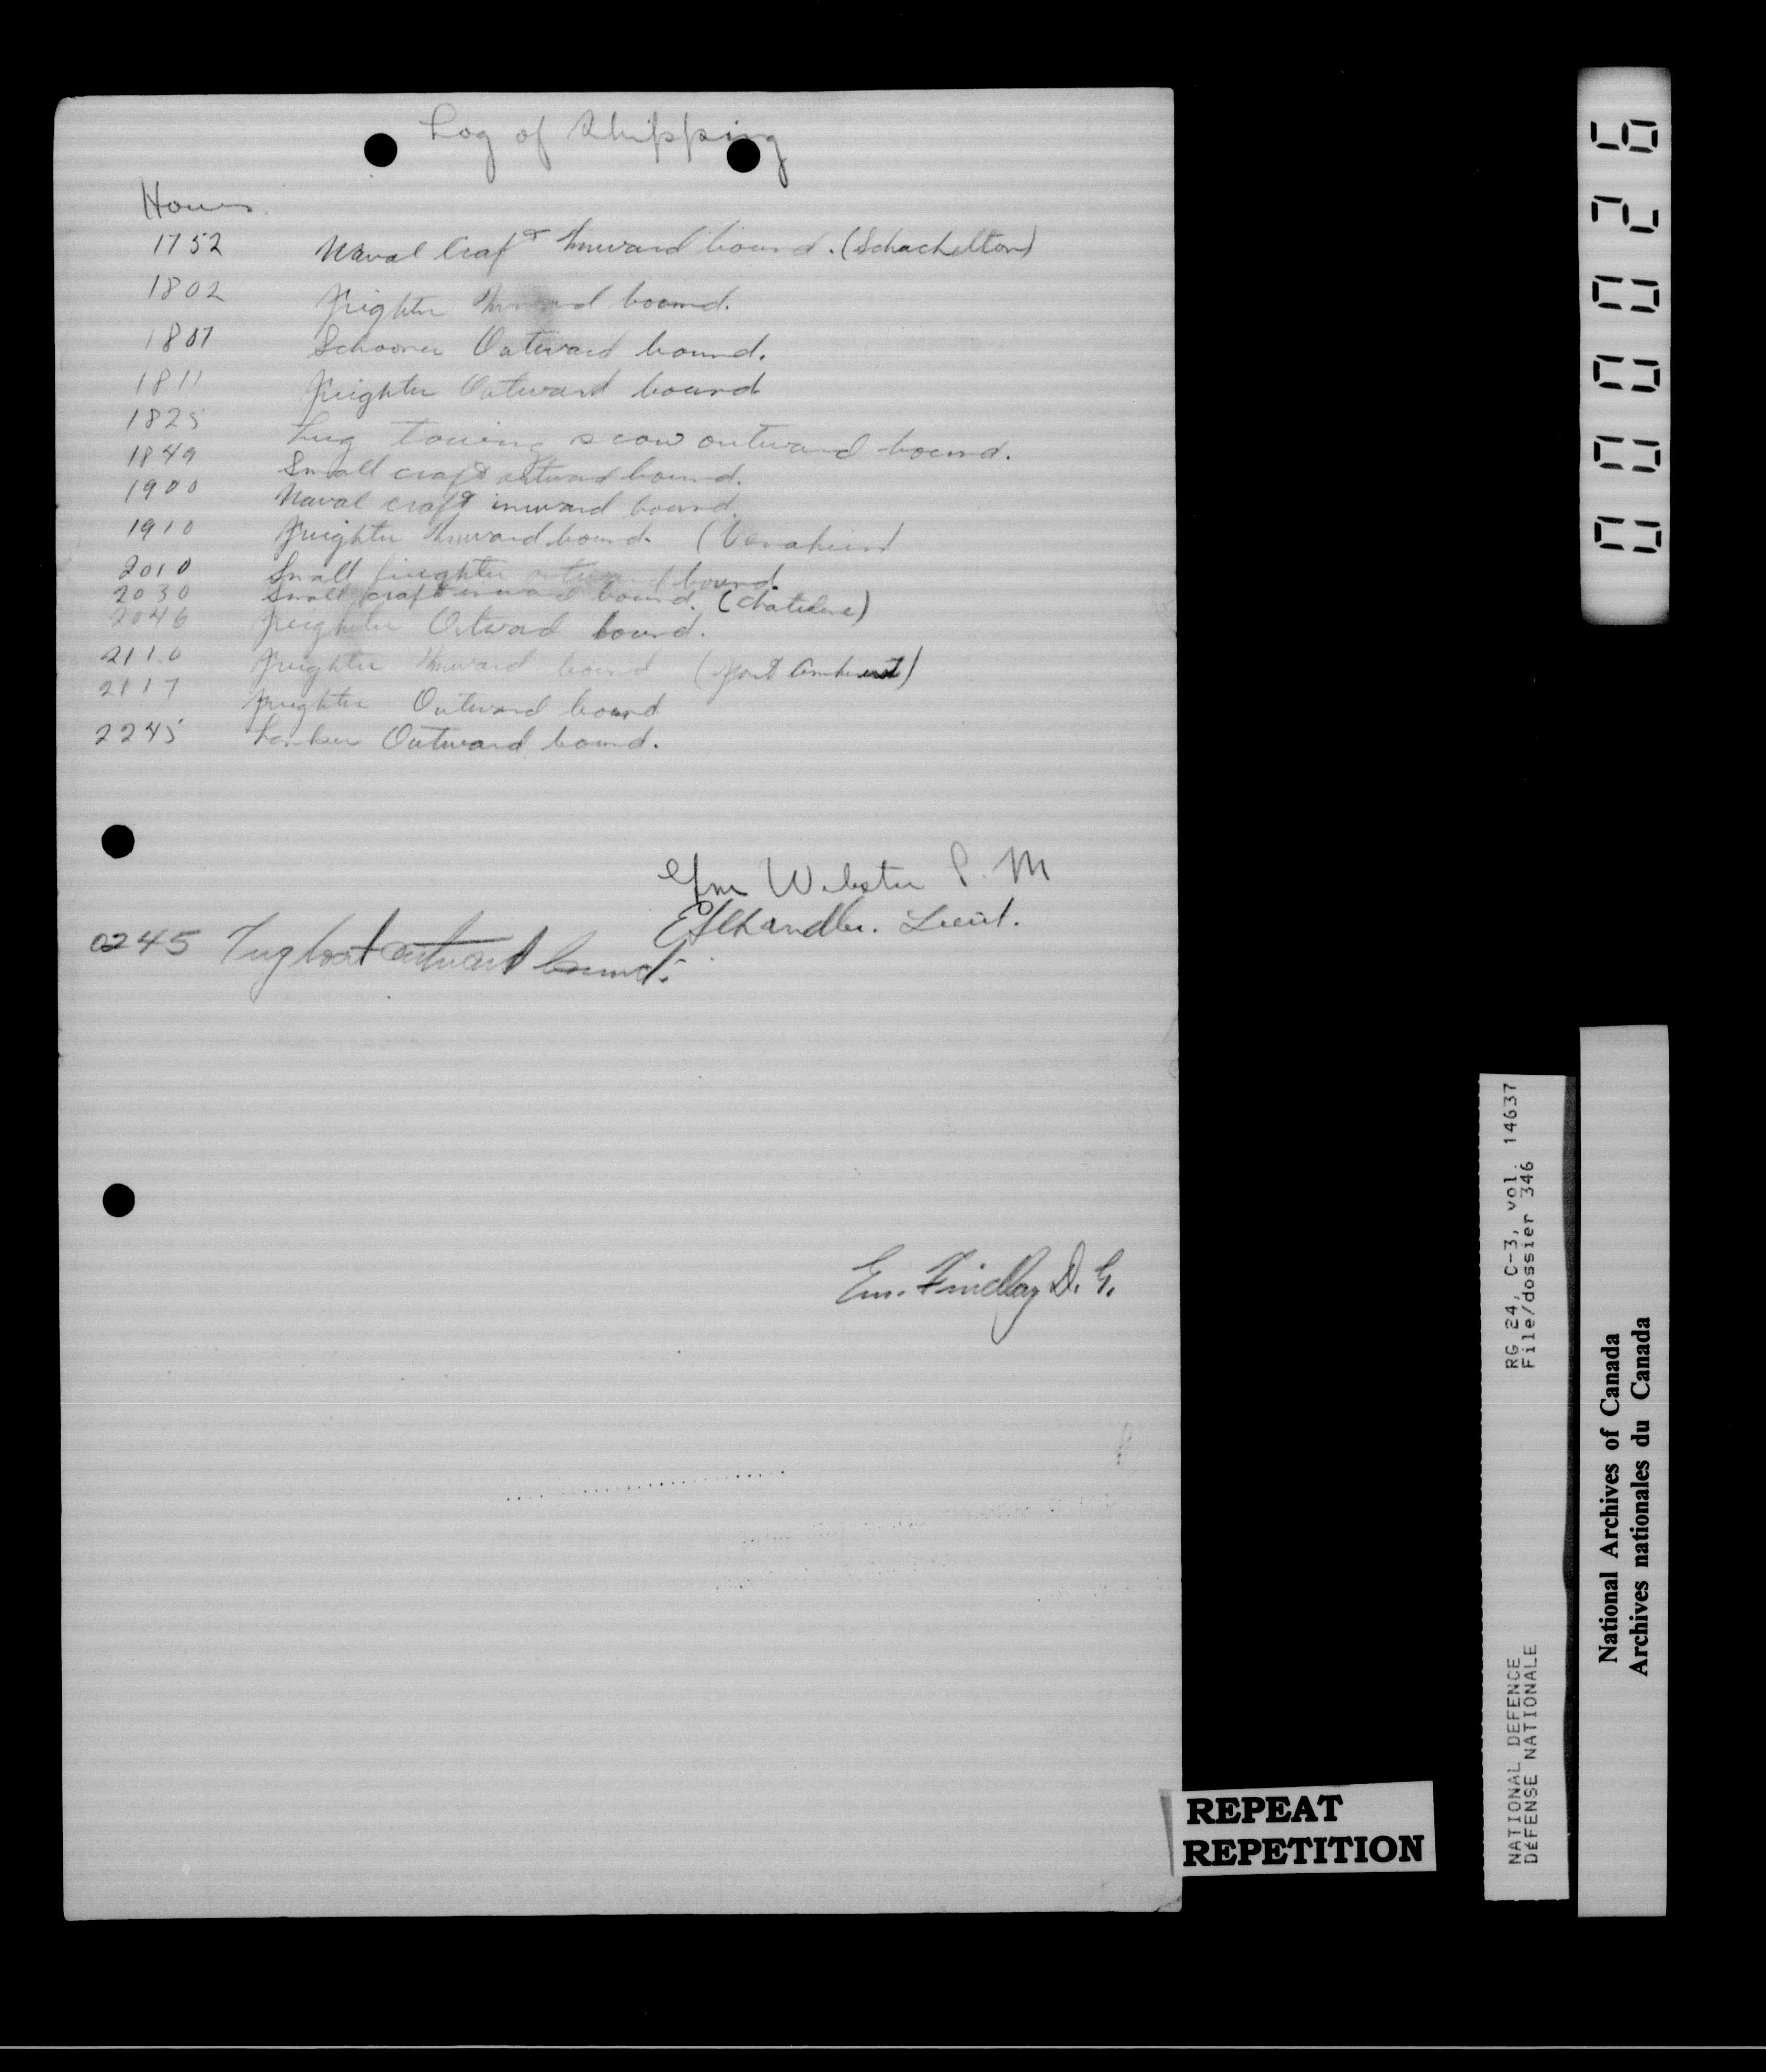 Log of Shipping
Hours
1752 Naval Craft Inward bound. (Schackelton)
1802 Frighter Inward bound.
1807 Schooner Outward bound.
1811 Freighter Outward bound
1825 Tug towing scow outward bound.
1849 Small craft outward bound.
1900 Naval craft inward bound.
1910 Freighter Inward bound. (
2010 Small freighter outward bound.
2030 Small craft inward bound. (
2046 Freighter Outward bound.
2110 Freighter Inward bound (Fort Amherst)
2117 Freighter Outward bound
2245 Tanker Outward bound.
Webster P. M
Chandler. Lieut.
0245 Tug boat outward bound.
Findlay D. G.
REPEAT
REPETITION
000026
RG 24, C-3, vol. 14637
File/dossier 346
NATIONAL DEFENCE
DÉFENSE NATIONALE
National Archives of Canada
Archives nationales du Canada